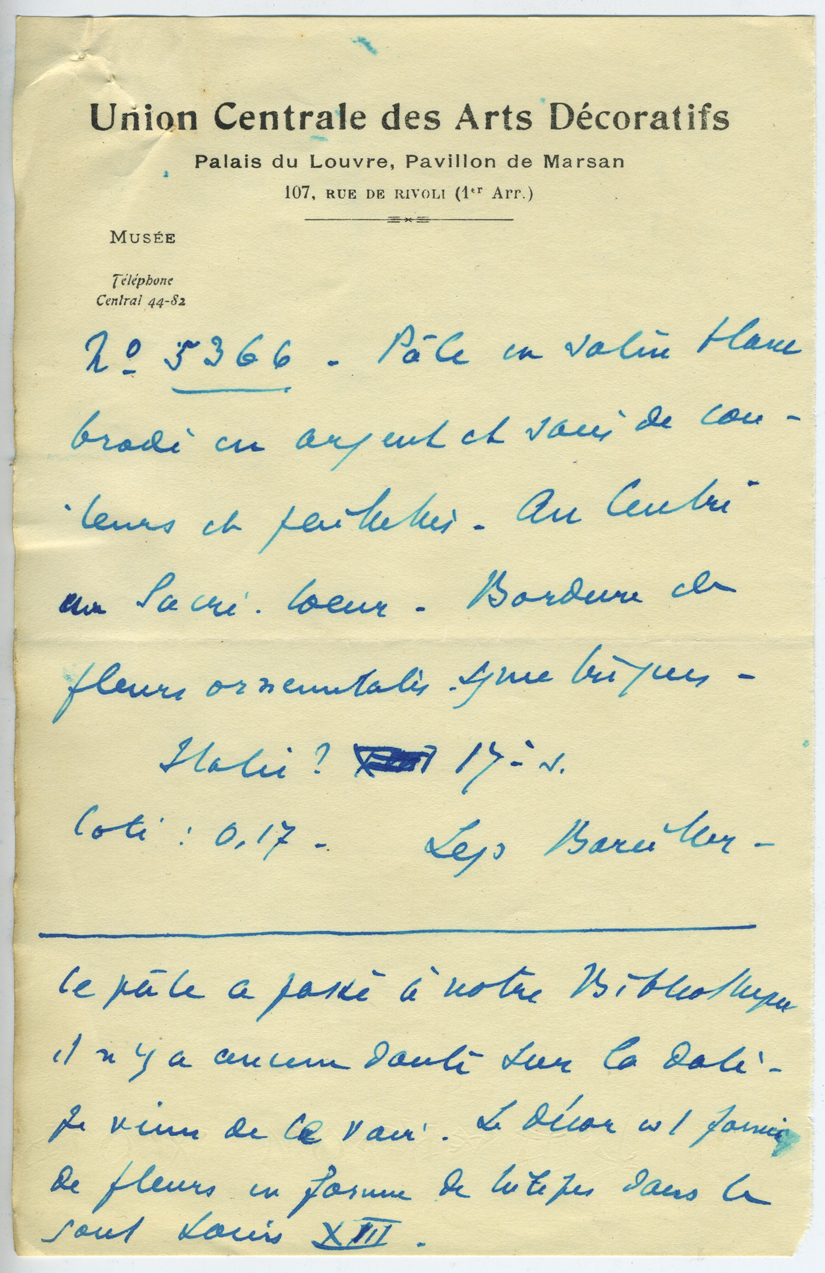 Union Centrale des Arts Décoratifs
Palais du Louvre, Pavillon de Marsan
107, RUE DE RIVOLI (1er Arr.)
MUSÉE
Téléphone
Central 44-82
No 5366 - Pâle en satin blanc
brodé en argent et soies de cou-
leurs et paillettes - Au Centre
un Sacré-Coeur - Bordure de
fleurs ornementales symetriques -
Italie ? 17e s.
Coté : 0,17 - Legs Bareiller -
Ce pâle a passé à notre Bibliothèque
il n'y a aucun doute sur la date -
Je viens de le voir. Le décor est formé
de fleurs en forme de tulipes dans le
goût Louis XIII.